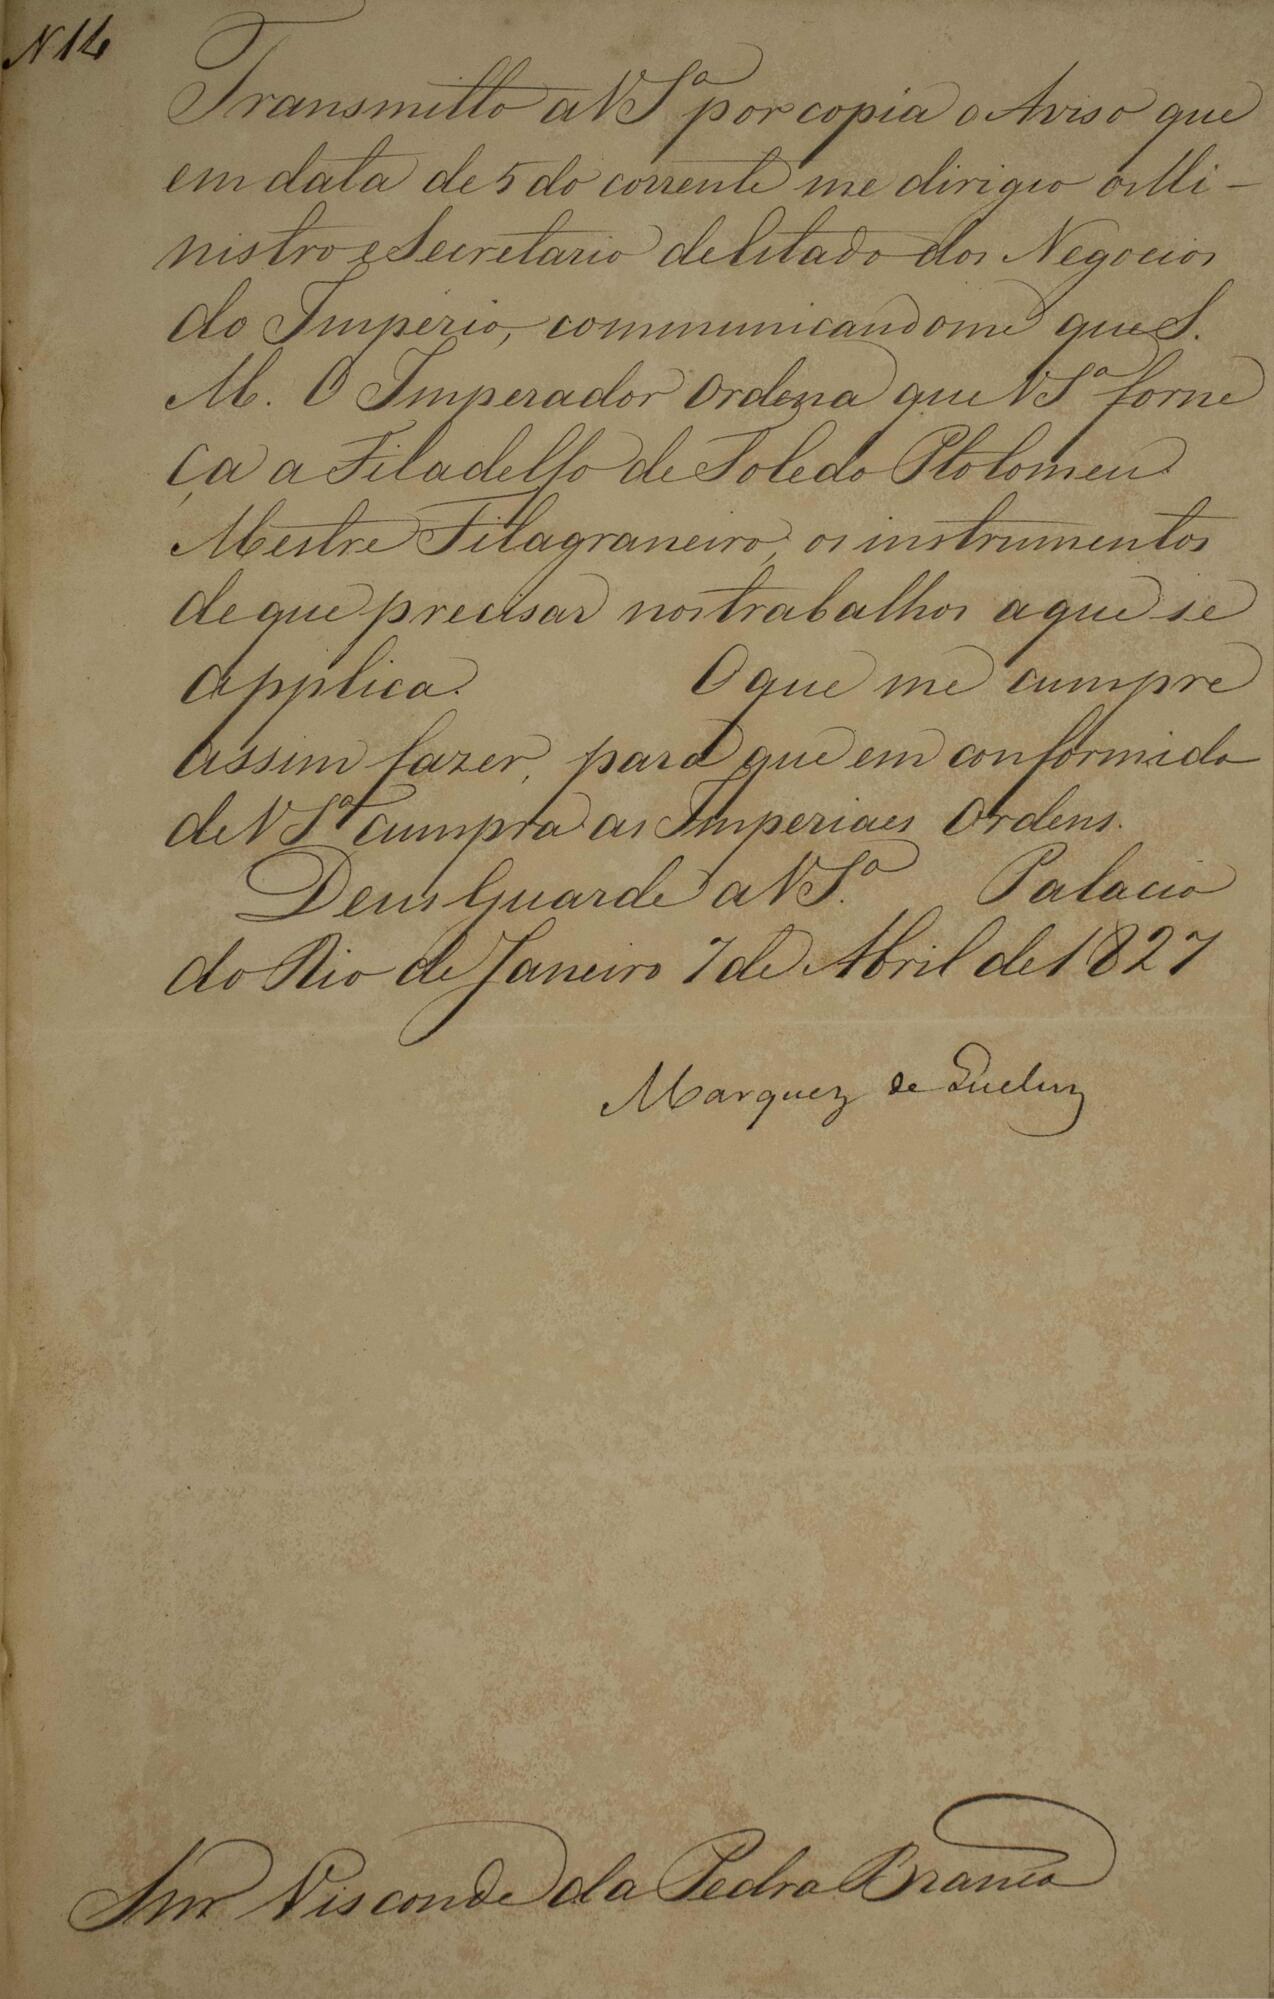 N 14
Transmitto a V Sª por copia o Aviso que
em data de 5 do corrente me dirigio o Mi-
nistro e Secretario de Estado dos Negocios
do Imperio, communicandome que S.
M. O Imperador Ordena que V Sª forne
ça a Filadelfo de Toledo Ptolomeu
Mestre Filagraneiro, os instrumentos
de que precisar nos trabalhos a que se
applica. O que me cumpre
assim fazer, para que em conformida
de V Sª cumpra as Imperiaes Ordens.
Deus Guarde a V Sª. Palacio
do Rio de Janeiro 7 de Abril de 1827
Marquez de Queluz
Snr Visconde da Pedra Branca